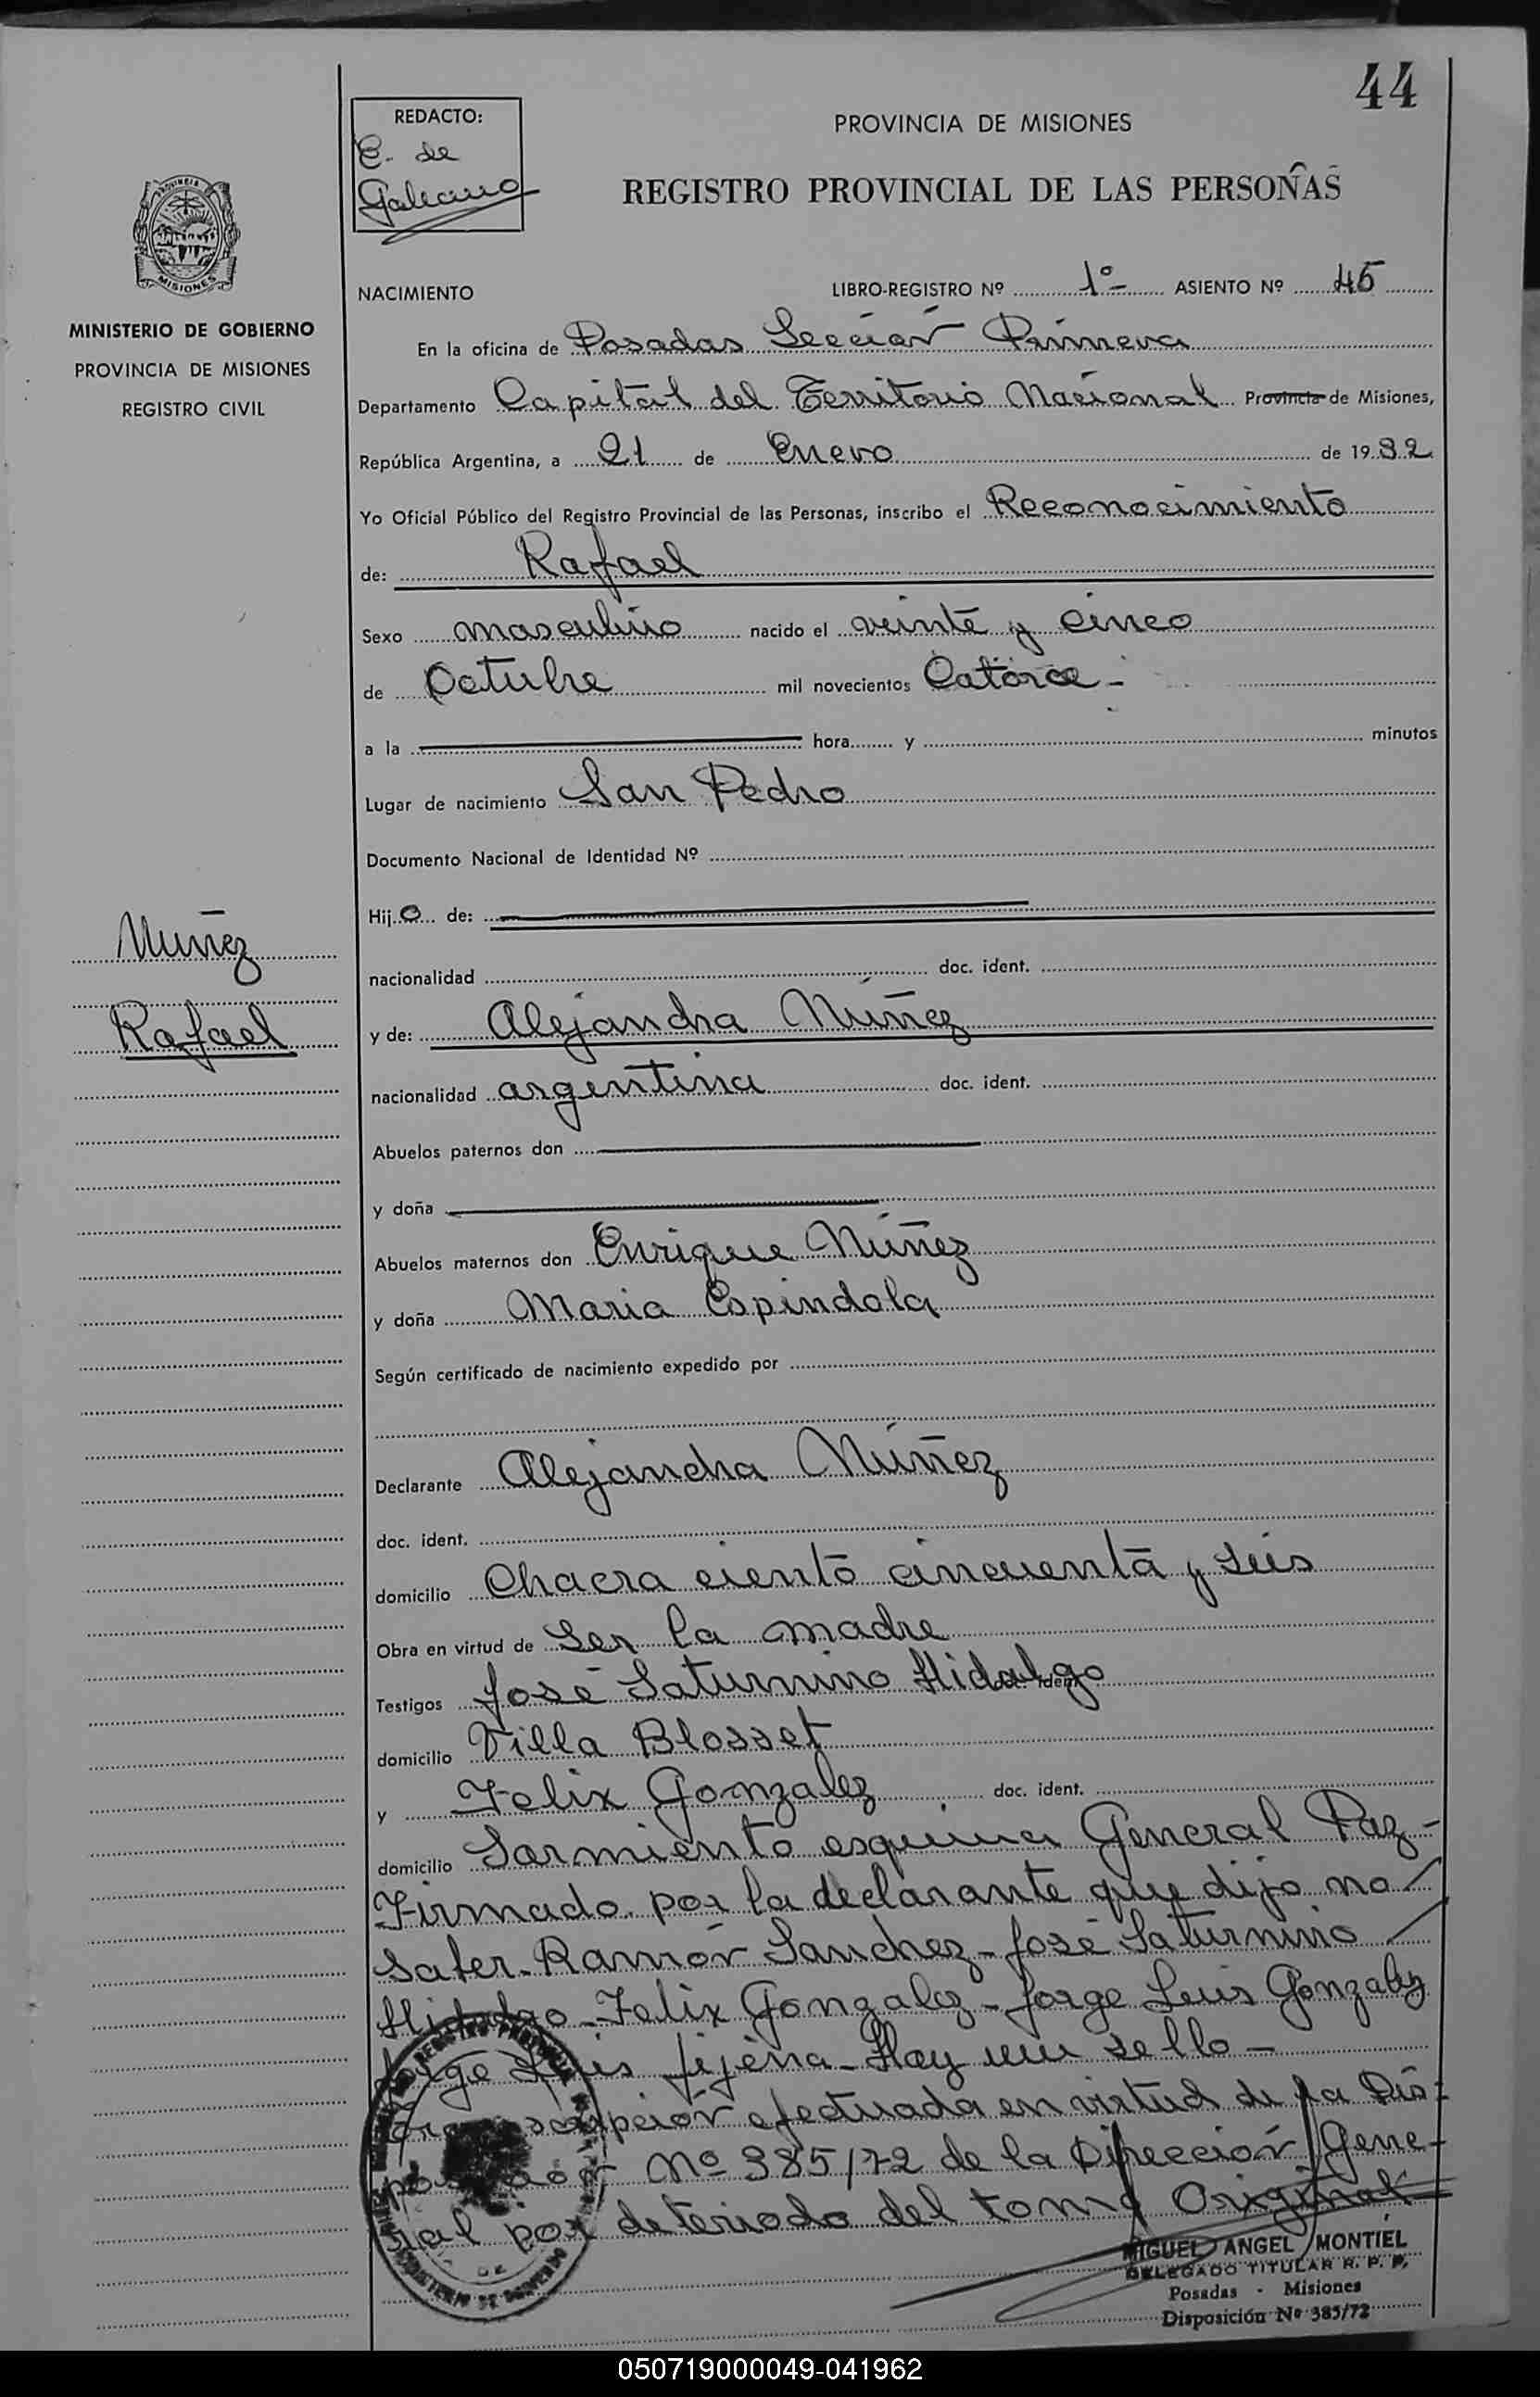 44
REDACTO:
E. de
Galeano
PROVINCIA DE MISIONES
REGISTRO PROVINCIAL DE LAS PERSONAS
PROVINCIA
MISIONES
MINISTERIO DE GOBIERNO
PROVINCIA DE MISIONES
REGISTRO CIVIL
NACIMIENTO LIBRO-REGISTRO Nº 1º- ASIENTO Nº 45
En la oficina de Posadas Sección Primera
Departamento Capital del Territorio Nacional Provincia de Misiones,
República Argentina, a 21 de Enero de 1932
Yo Oficial Público del Registro Provincial de las Personas, inscribo el Reconocimiento
de: Rafael
Sexo masculino nacido el veinte y cinco
de Octubre mil novecientos Catorce -
a la hora y minutos
Lugar de nacimiento San Pedro
Documento Nacional de Identidad Nº
Hijo de:
nacionalidad doc. ident.
Nuñez
Rafael
y de: Alejandra Núñez
nacionalidad argentina doc. ident.
Abuelos paternos don
y doña
Abuelos maternos don Enrique Núñez
y doña Maria Espindola
Según certificado de nacimiento expedido por
Declarante Alejandra Núñez
doc. ident.
domicilio Chacra ciento cincuenta y seis
Obra en virtud de Ser la madre
Testigos José Saturnino Hidalgo
domicilio Villa Blosset
y Felix Gonzalez doc. ident.
domicilio Sarmiento esquina General Paz -
Firmado por la declarante que dijo no
saber - Ramón Sanchez - José Saturnino
Hidalgo - Felix Gonzalez - Jorge Luis Gonzalez
Jorge Luis Jejena - Hay un sello -
Transcripción efectuada en virtud de la Dis-
posición Nº 385/72 de la Dirección Gene-
ral por deteriodo del tomo Original
MIGUEL ANGEL MONTIEL
DELEGADO TITULAR R. P. P.
Posadas - Misiones
Disposición Nº 385/72
050719000049-041962